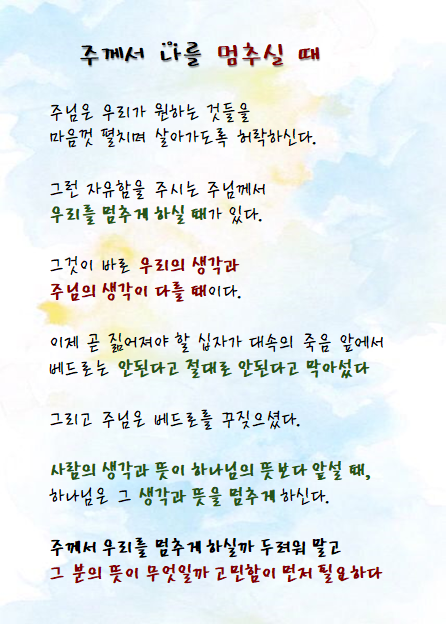 주께서 나를 멈추실 때
주님은 우리가 원하는 것들을
마음껏 펼치며 살아가도록 허락하신다.
그런 자유함을 주시는 주님께서
우리를 멈추게 하실 때가 있다.
그것이 바로 우리의 생각과
주님의 생각이 다를 때이다.
이제 곧 짊어져야 할 십자가 대속의 죽음 앞에서
베드로는 안된다고 절대로 안된다고 막아섰다
그리고 주님은 베드로를 꾸짖으셨다.
사람의 생각과 뜻이 하나님의 뜻보다 앞설 때,
하나님은 그 생각과 뜻을 멈추게 하신다.
주께서 우리를 멈추게 하실까 두려워 말고
그 분의 뜻이 무엇일까 고민함이 먼저 필요하다